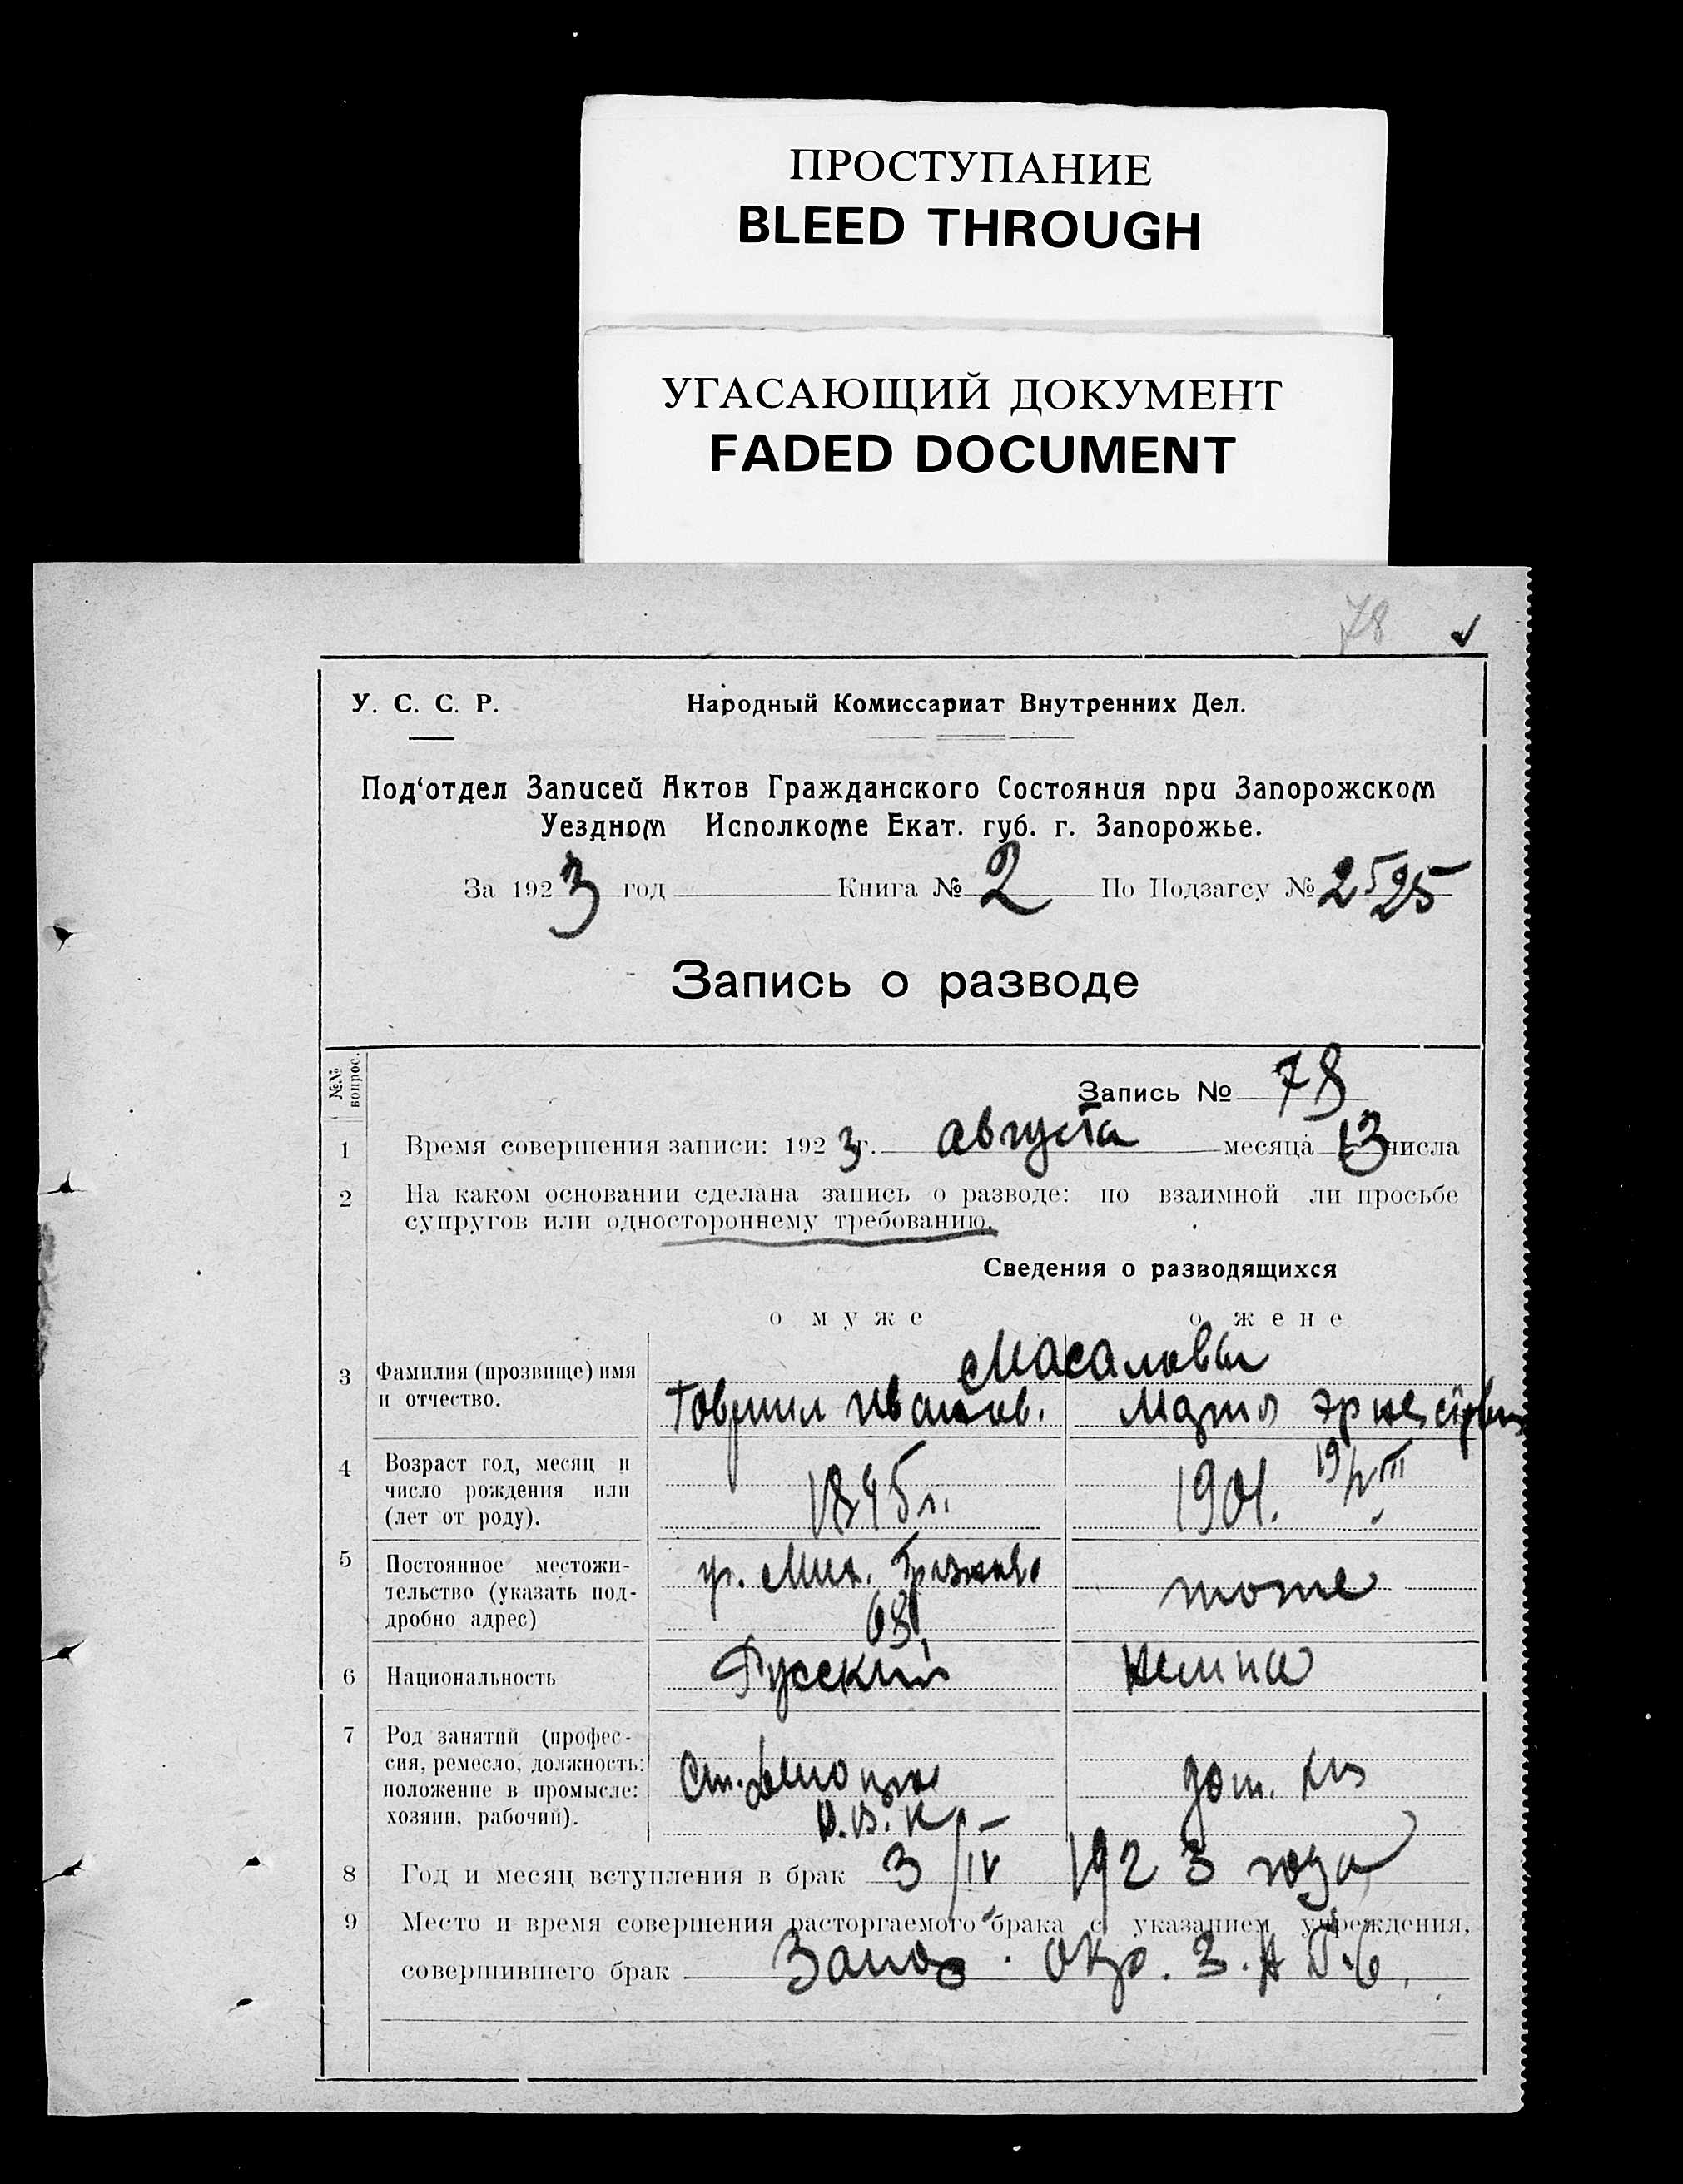 ПРОСТУПАНИЕ
BLEED THROUGH
УГАСАЮЩИЙ ДОКУМЕНТ
FADED DOCUMENT
78
У. С. С. Р. Народный Комиссариат Внутренних Дел.
Под‘отдел Записей Актов Гражданского Состояния при Запорожском
Уездном Исполкоме Екат. губ. г. Запорожье.
За 1923 год Книга № 2 По Подзагсу № 2525
Запись о разводе
№№ вопрос.
Запись № 78
1 Время совершения записи: 1923 г. августа месяца 13 числа
2 На каком основании сделана запись о разводе: по взаимной ли просьбе
супругов или одностороннему требованию.
Сведения о разводящихся
о муже о жене
Масаловы
3 Фамилия (прозвище) имя
и отчество. Гавриил Иванов.
4 Возраст год, месяц и
число рождения или
(лет от роду). 1895 г. 1901.
5 Постоянное местожи-
тельство (указать под-
дробно адрес) тоже
68
6 Национальность Русский немка
7 Род занятий (профес-
сия, ремесло, должность:
положение в промысле:
хозяин, рабочий). дом. хоз
8 Год и месяц вступления в брак 3/IV 1923 года
9 Место и время совершения расторгаемого брака с указанием учреждения,
совершившего брак Запо Окр. З.А.Г.С.